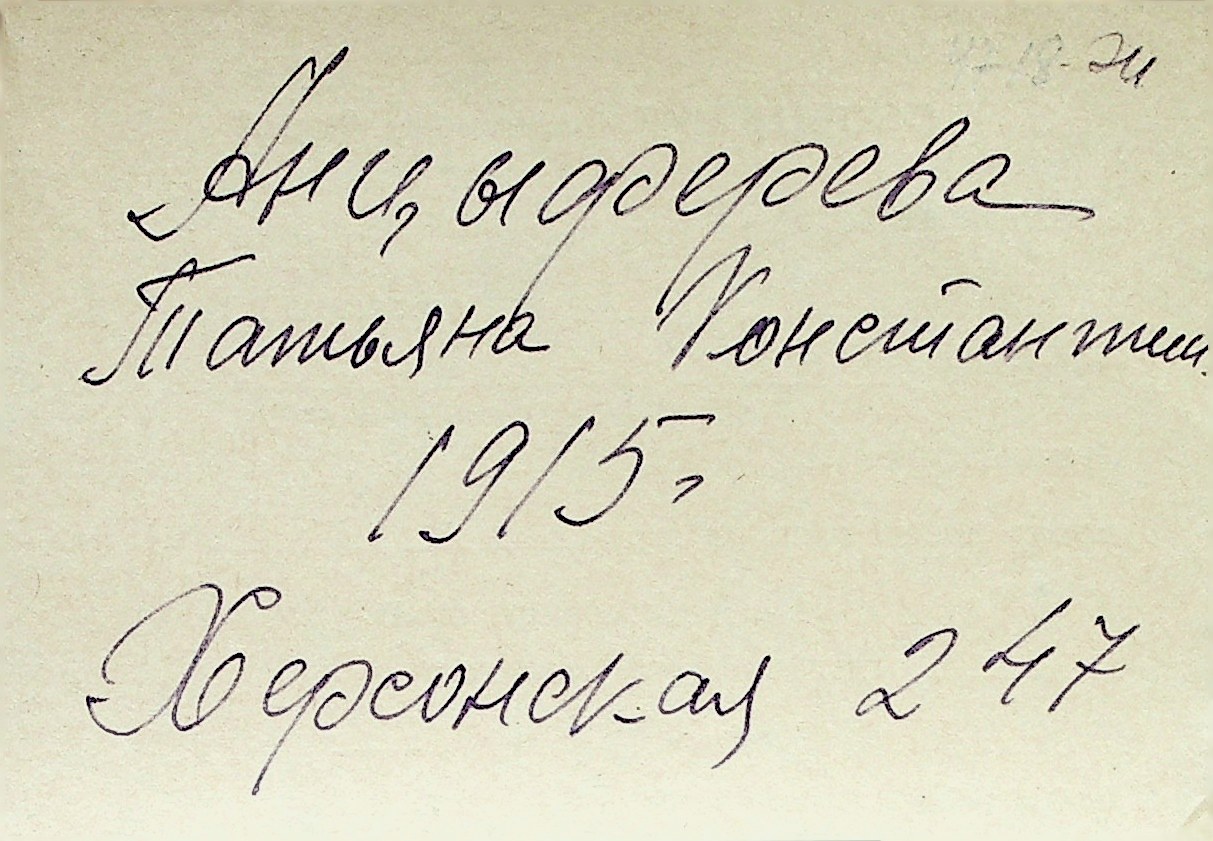 Анцыферева
Татьяна Константин.
1915г
Херсонская 2 47